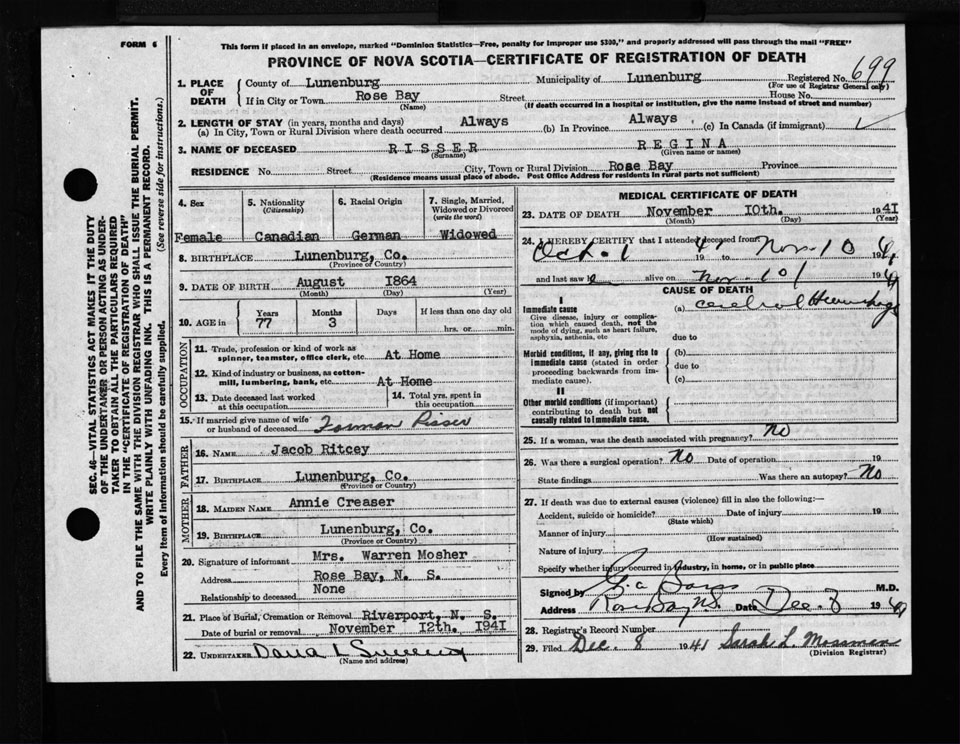 FORM 6
This form if placed in an envelope, marked "Dominion Statistics—Free, penalty for improper use $300," and properly addressed will pass through the mail "FREE"
PROVINCE OF NOVA SCOTIA—CERTIFICATE OF REGISTRATION OF DEATH
SEC. 46—VITAL STATISTICS ACT MAKES IT THE DUTY
OF THE UNDERTAKER OR PERSON ACTING AS UNDER-
TAKER TO OBTAIN ALL THE PARTICULARS REQUIRED
IN THE "CERTIFICATE OF REGISTRATION OF DEATH"
AND TO FILE THE SAME WITH THE DIVISION REGISTRAR WHO SHALL ISSUE THE BURIAL PERMIT.
WRITE PLAINLY WITH UNFADING INK. THIS IS A PERMANENT RECORD.
Every item of Information should be carefully supplied. (See reverse side for instructions.)
1. PLACE OF DEATH County of Lunenburg Municipality of Lunenburg Registered No. 699
(For use of Registrar General only)
If in City or Town Rose Bay Street House No.
(Name) (If death occurred in a hospital or institution, give the name instead of street and number)
2. LENGTH OF STAY (in years, months and days)
(a) In City, Town or Rural Division where death occurred Always (b) In Province Always (c) In Canada (if immigrant)
3. NAME OF DECEASED RISSER REGINA
(Surname) (Given name or names)
RESIDENCE No. Street City, Town or Rural Division Rose Bay Province
(Residence means usual place of abode. Post Office Address for residents in rural parts not sufficient)
4. Sex 5. Nationality (Citizenship) 6. Racial Origin 7. Single, Married, Widowed or Divorced (write the word)
Female Canadian German Widowed
8. BIRTHPLACE Lunenburg, Co.
(Province or Country)
9. DATE OF BIRTH August 1864
(Month) (Day) (Year)
10. AGE in Years 77 Months 3 Days If less than one day old
hrs. or min.
OCCUPATION
11. Trade, profession or kind of work as
spinner, teamster, office clerk, etc. At Home
12. Kind of industry or business, as cotton-
mill, lumbering, bank, etc. At Home
13. Date deceased last worked
at this occupation
14. Total yrs. spent in
this occupation
15. If married give name of wife
or husband of deceased Forman Risser
FATHER
16. NAME Jacob Ritcey
17. BIRTHPLACE Lunenburg, Co.
(Province or Country)
MOTHER
18. MAIDEN NAME Annie Creaser
19. BIRTHPLACE Lunenburg, Co.
(Province or Country)
20. Signature of informant Mrs. Warren Mosher
Address Rose Bay, N. S.
Relationship to deceased None
21. Place of Burial, Cremation or Removal Riverport, N. S.
Date of burial or removal November 12th. 1941
22. UNDERTAKER
(Name and address)
MEDICAL CERTIFICATE OF DEATH
23. DATE OF DEATH November 10th. 1941
(Month) (Day) (Year)
24. I HEREBY CERTIFY that I attended deceased from
Oct. 1 19 41 to Nov. 10 41
and last saw alive on Nov. 10 1941
CAUSE OF DEATH
I
Immediate cause
Give disease, injury or complica-
tion which caused death, not the
mode of dying, such as heart failure,
asphyxia, asthenia, etc
(a) cerebral Hemorrhage
due to
Morbid conditions, if any, giving rise to
Immediate cause (stated in order
proceeding backwards from im-
mediate cause).
(b)
due to
(c)
II
Other morbid conditions (if important)
contributing to death but not
causally related to immediate cause.
25. If a woman, was the death associated with pregnancy? No
26. Was there a surgical operation? No Date of operation 19
State findings Was there an autopsy? No
27. If death was due to external causes (violence) fill in also the following:—
Accident, suicide or homicide? Date of injury 19
(State which)
Manner of injury
(How sustained)
Nature of injury
Specify whether injury occurred in industry, in home, or in public place
Signed by M.D.
Address Rose Bay NS. Date Dec. 8 1941
28. Registrar's Record Number
29. Filed Dec. 8 1941 Sarah L. Mossman
(Division Registrar)